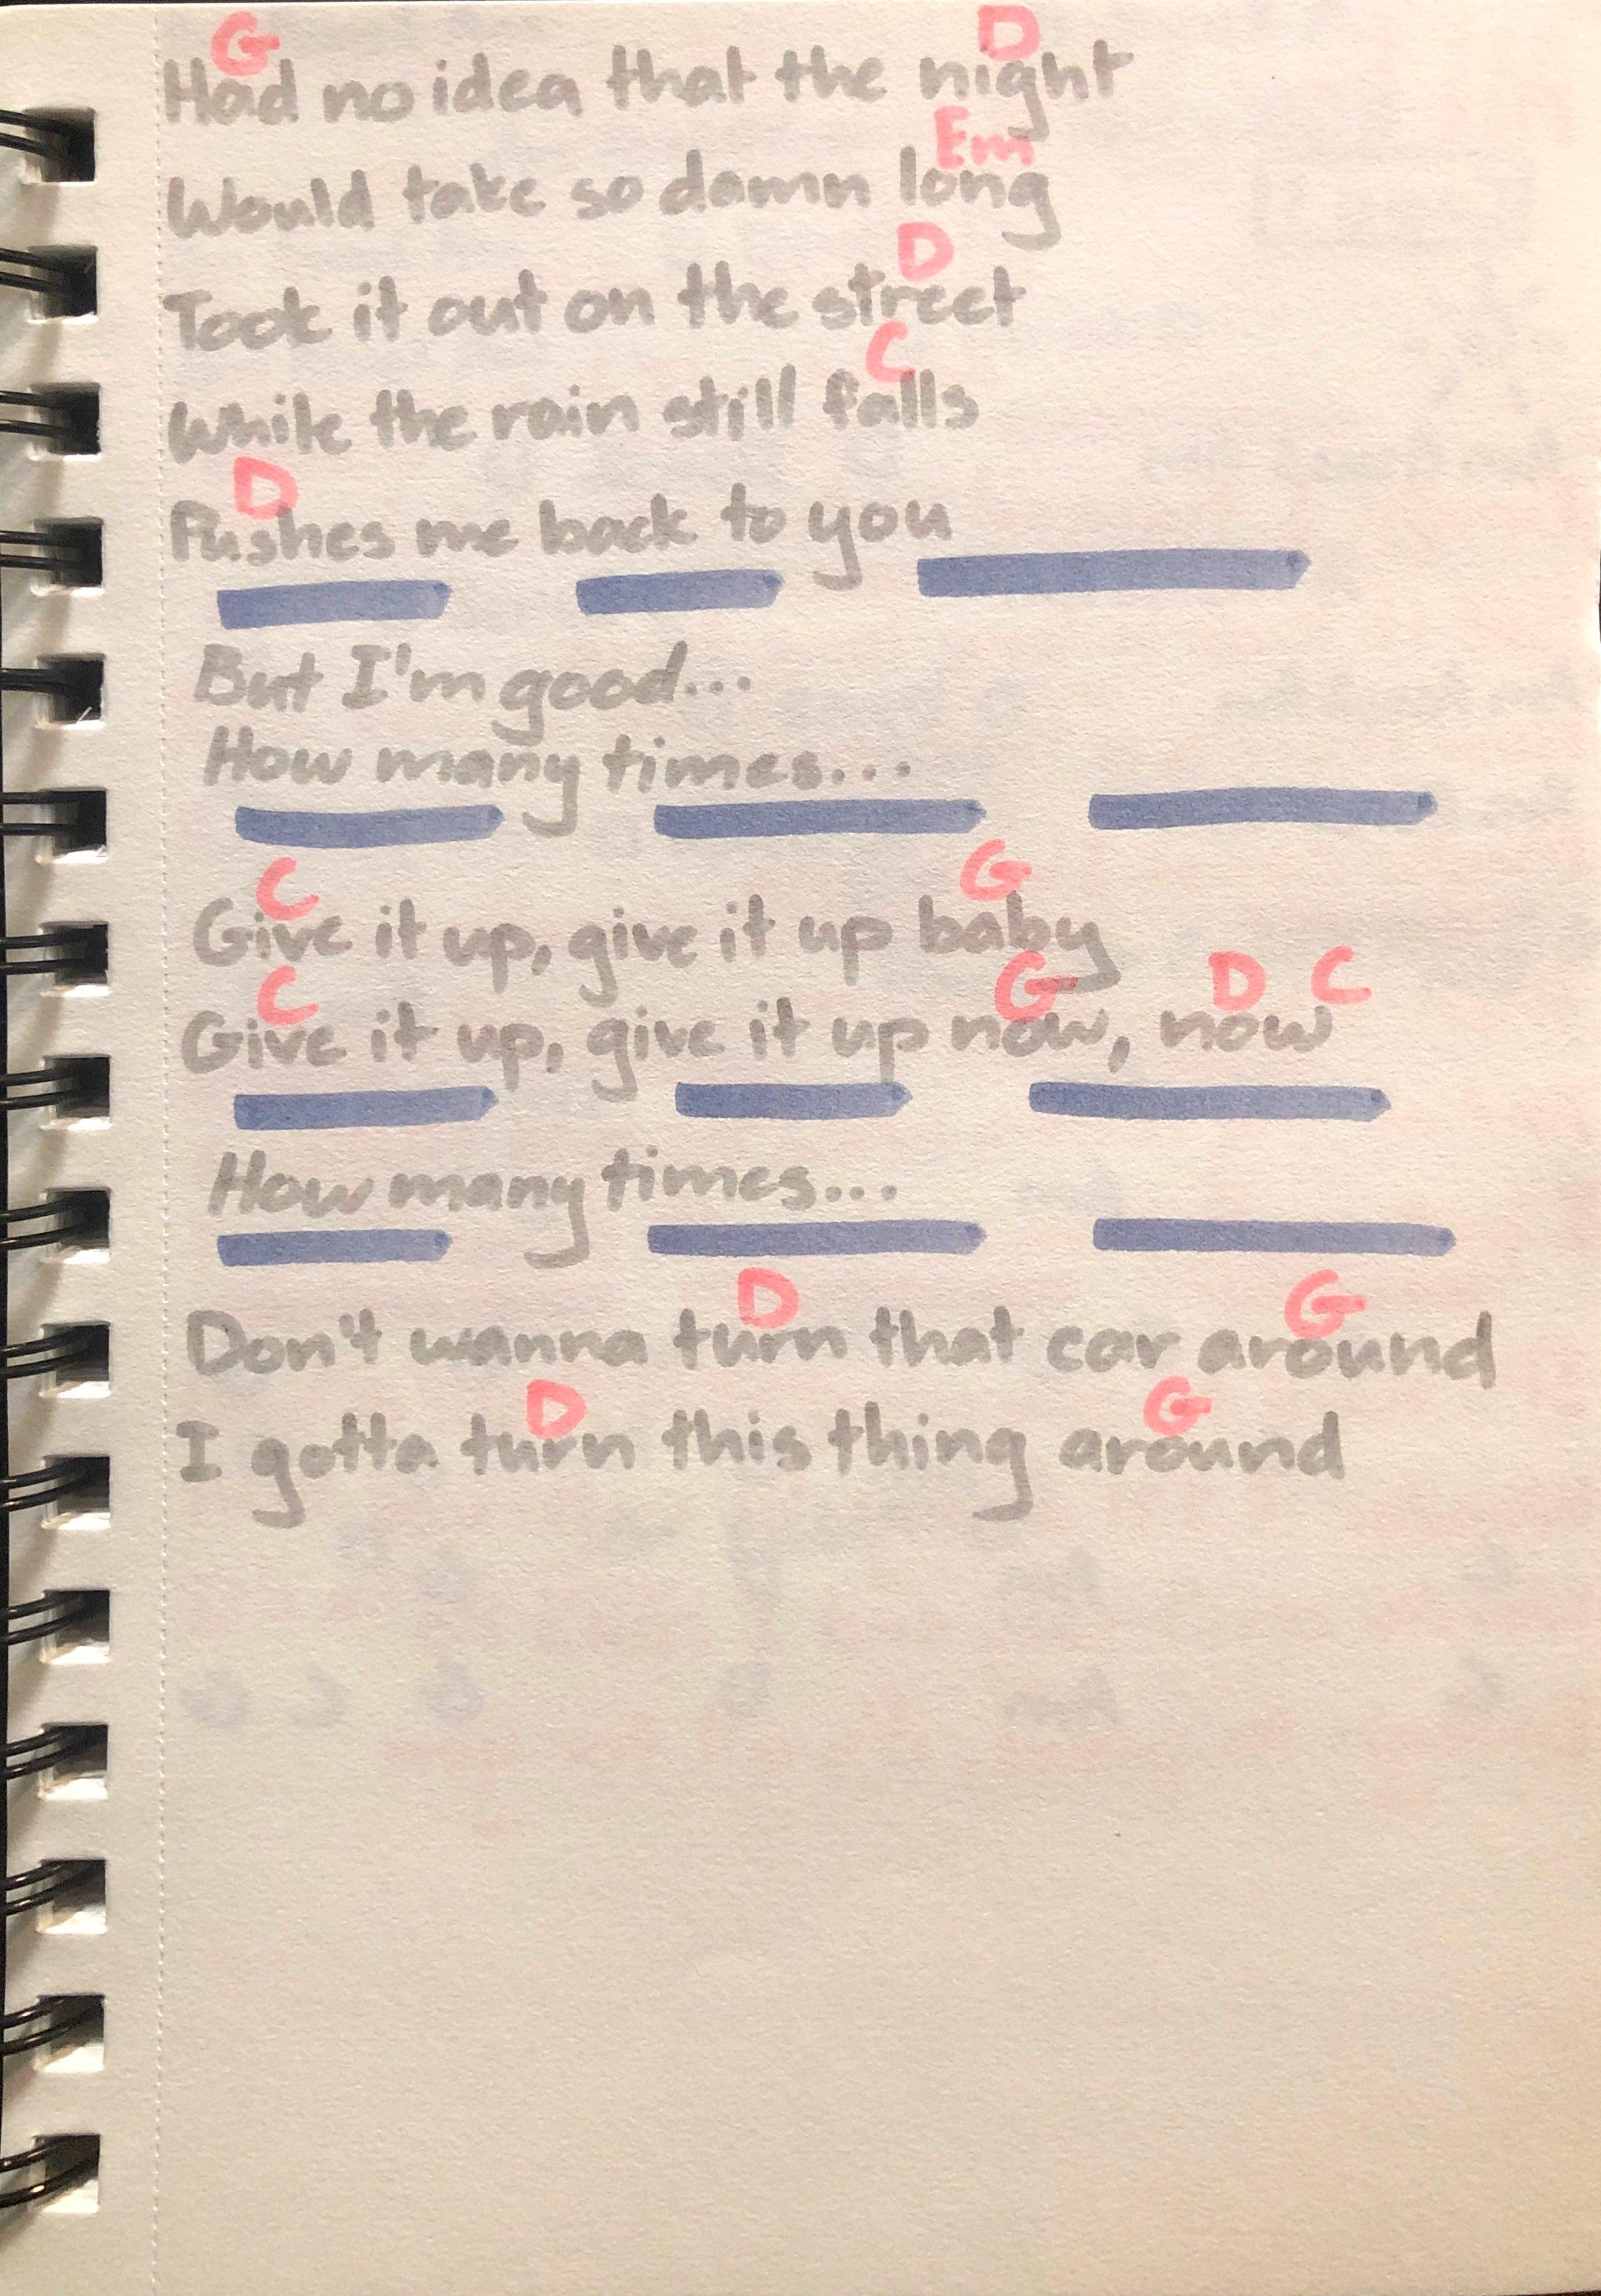 G D
Had no idea that the night
Em
Would take so damn long
D
Took it out on the street
C
While the rain still falls
D
Pushes me back to you
But I'm good...
How many times...
C G
Give it up, give it up baby
C G D C
Give it up, give it up now, now
How many times...
D G
Don't wanna turn that car around
D G
I gotta turn this thing around